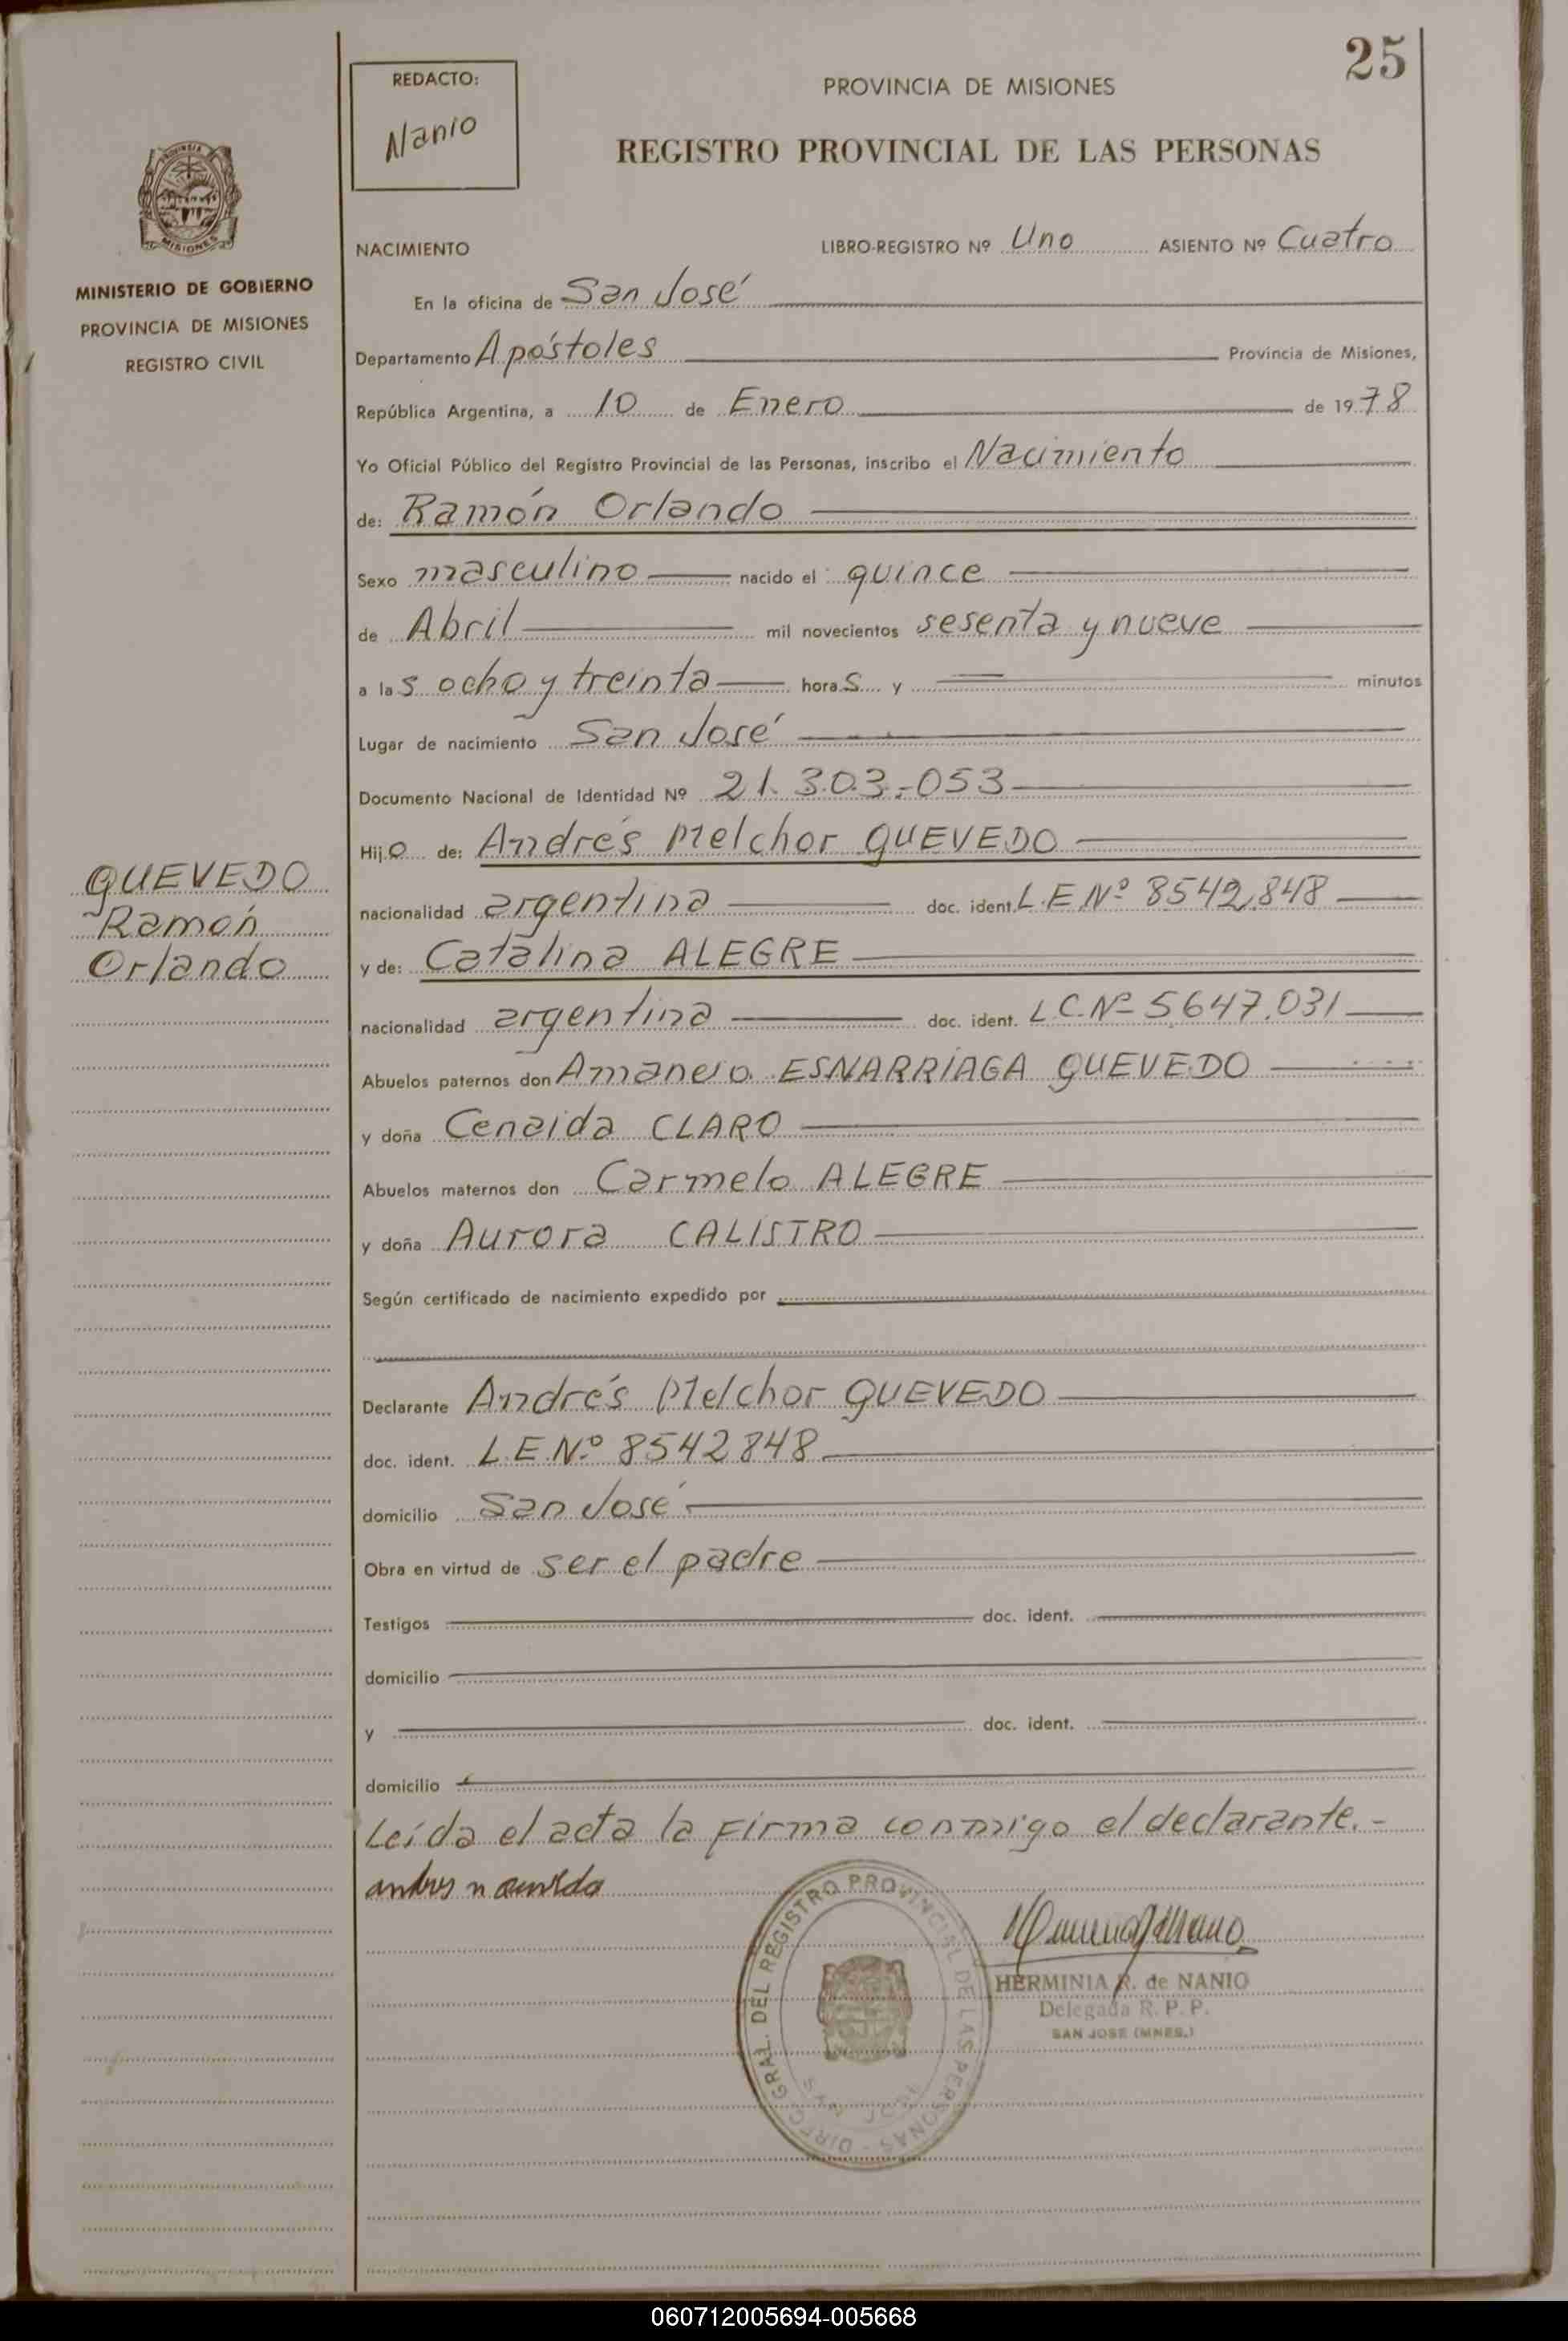 25
REDACTO:
Nanio
PROVINCIA DE MISIONES
REGISTRO PROVINCIAL DE LAS PERSONAS
MINISTERIO DE GOBIERNO
PROVINCIA DE MISIONES
REGISTRO CIVIL
NACIMIENTO LIBRO-REGISTRO Nº Uno ASIENTO Nº Cuatro
En la oficina de San José
Departamento Apóstoles Provincia de Misiones,
República Argentina, a 10 de Enero de 1978
Yo Oficial Público del Registro Provincial de las Personas, inscribo el Nacimiento
de: Ramón Orlando
Sexo masculino nacido el quince
de Abril mil novecientos sesenta y nueve
a las ocho y treinta horas y minutos
Lugar de nacimiento San José
Documento Nacional de Identidad Nº 21.303.-053
Hijo de: Andrés Melchor QUEVEDO
QUEVEDO
Ramón
Orlando
nacionalidad argentina doc. ident. L.E.Nº 8542.848
y de: Catalina ALEGRE
nacionalidad argentina doc. ident. L.C.Nº 5647.031
Abuelos paternos don ESNARRIAGA QUEVEDO
y doña Cenaida CLARO
Abuelos maternos don Carmelo ALEGRE
y doña Aurora CALISTRO
Según certificado de nacimiento expedido por
Declarante Andrés Melchor QUEVEDO
doc. ident. L.E.Nº 8542848
domicilio San José
Obra en virtud de ser el padre
Testigos doc. ident.
domicilio
y doc. ident.
domicilio
Leída el acta la firma conmigo el declarante.-
DIREC. GRAL. DEL REGISTRO PROVINCIAL DE LAS PERSONAS -
SAN JOSE
HERMINIA R. de NANIO
Delegada R. P. P.
SAN JOSE (MNES.)
060712005694-005668